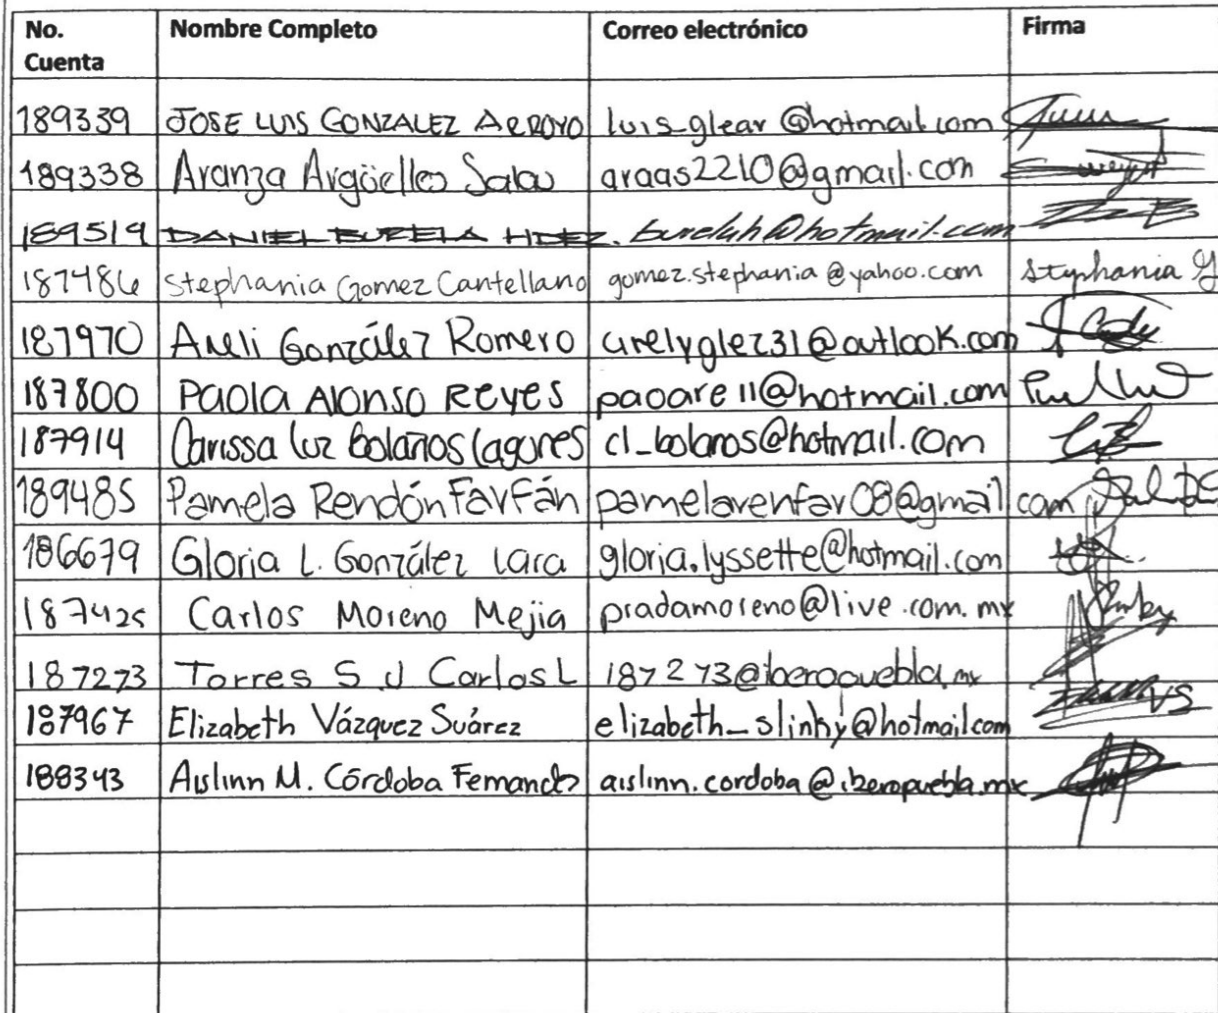 No. Cuenta Nombre Completo Correo electrónico Firma
189339 JOSE LUIS GONZALEZ ARROYO luis_glear@hotmail.com
189338 Aranza Argüelles Salas araas2210@gmail.com
189519 DANIEL BURELA HDEZ. burelah@hotmail.com
187486 Stephania Gomez Cantellano gomez.stephania@yahoo.com Stephania G
187970 Areli González Romero arelyglez31@outlook.com
187800 Paola Alonso Reyes paoare11@hotmail.com
187914 Carissa Luz Bolaños Lagunes cl_bolanos@hotmail.com
189485 Pamela Rendón Farfán pamelarenfar08@gmail.com
186679 Gloria L. González Lara gloria.lyssette@hotmail.com
187425 Carlos Moreno Mejia pradamoreno@live.com.mx
187273 Torres S J Carlos L 187273@iberopuebla.mx
187967 Elizabeth Vázquez Suárez elizabeth_slinky@hotmail.com
188343 Aislinn M. Córdoba Fernandez aislinn.cordoba@iberopuebla.mx